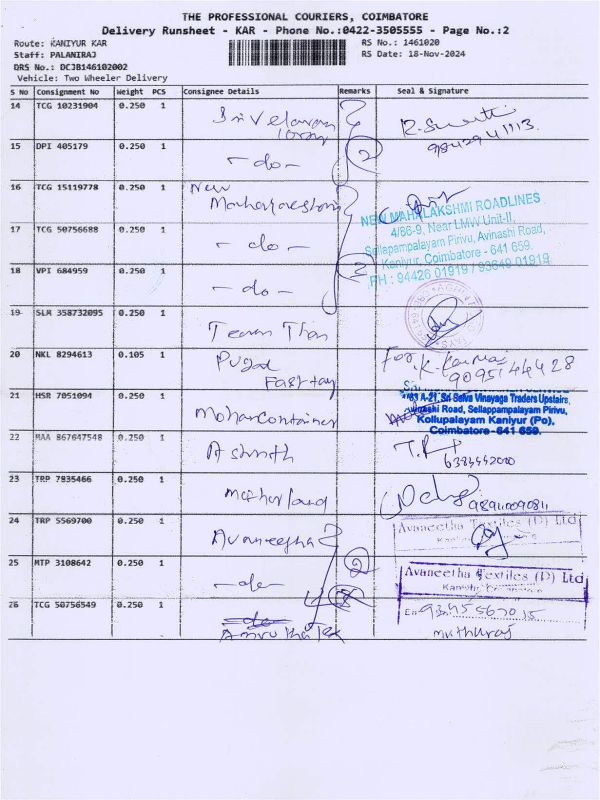 THE PROFESSIONAL COURIERS, COIMBATORE
Delivery Runsheet - KAR - Phone No.:0422-3505555 - Page No.:2
Route: KANIYUR KAR
RS No.: 1461020
Staff: PALANIRAJ
RS Date: 18-Nov-2024
DRS No.: DCJB146102002
Vehicle: Two Wheeler Delivery
S No Consignment No Weight PCS Consignee Details Remarks Seal & Signature
14 TCG 10231904 0.250 1
15 DPI 405179 0.250 1 -do- 2
16 TCG 15119778 0.250 1 New
17 TCG 50756688 0.250 1 -do-
NEW MAHALAKSHMI ROADLINES
4/66-9, Near LMW Unit-II,
Sellappampalayam Pirivu, Avinashi Road,
Kaniyur, Coimbatore - 641 659.
PH : 94426 01919 / 93649 01919
18 VPI 684959 0.250 1 -do- 3
19 SLM 358732095 0.250 1 Team Thai
20 NKL 8294613 0.105 1 Pugal
Fasttag
For, K-
9095144428
21 HSR 7051094 0.250 1 Mohan Container
A-21, Sri Selva Vinayaga Traders Upstairs,
Avinashi Road, Sellappampalayam Pirivu,
Kollupalayam Kaniyur (Po),
Coimbatore - 641 659.
22 MAA 867647548 0.250 1 Asmith
23 TRP 7935466 0.250 1 Motherland
24 TRP 5569700 0.250 1 Avaneetha
Avaneetha Textiles (D) Ltd
25 MTP 3108642 0.250 1 -do- 2
Avaneetha Textiles (D) Ltd
26 TCG 50756549 0.250 1 -do-
Amrutha Tex
muthuraj